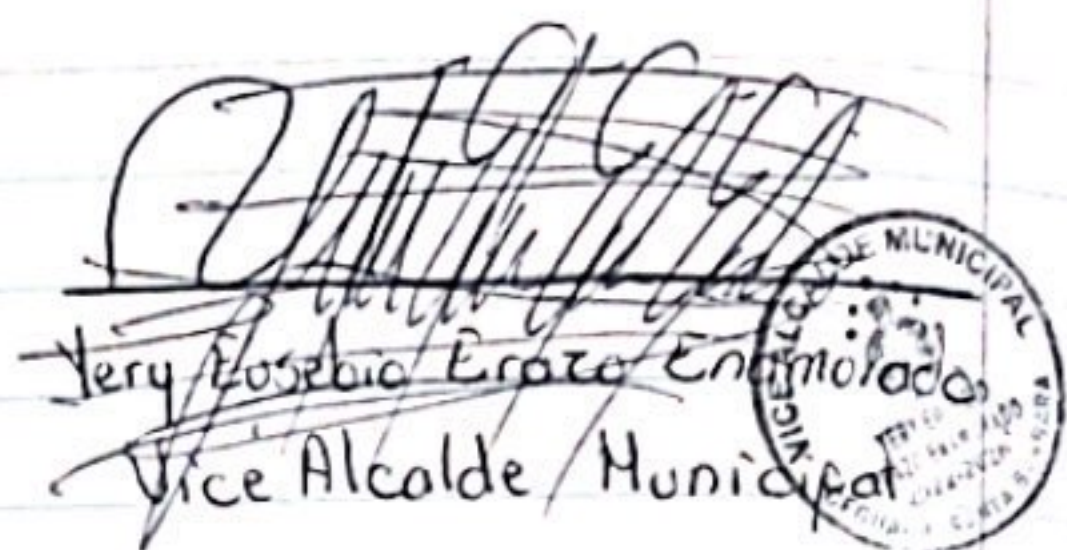 Yery Eusebio Erazo Enamorado
Vice Alcalde Municipal
VICEALCALDE MUNICIPAL